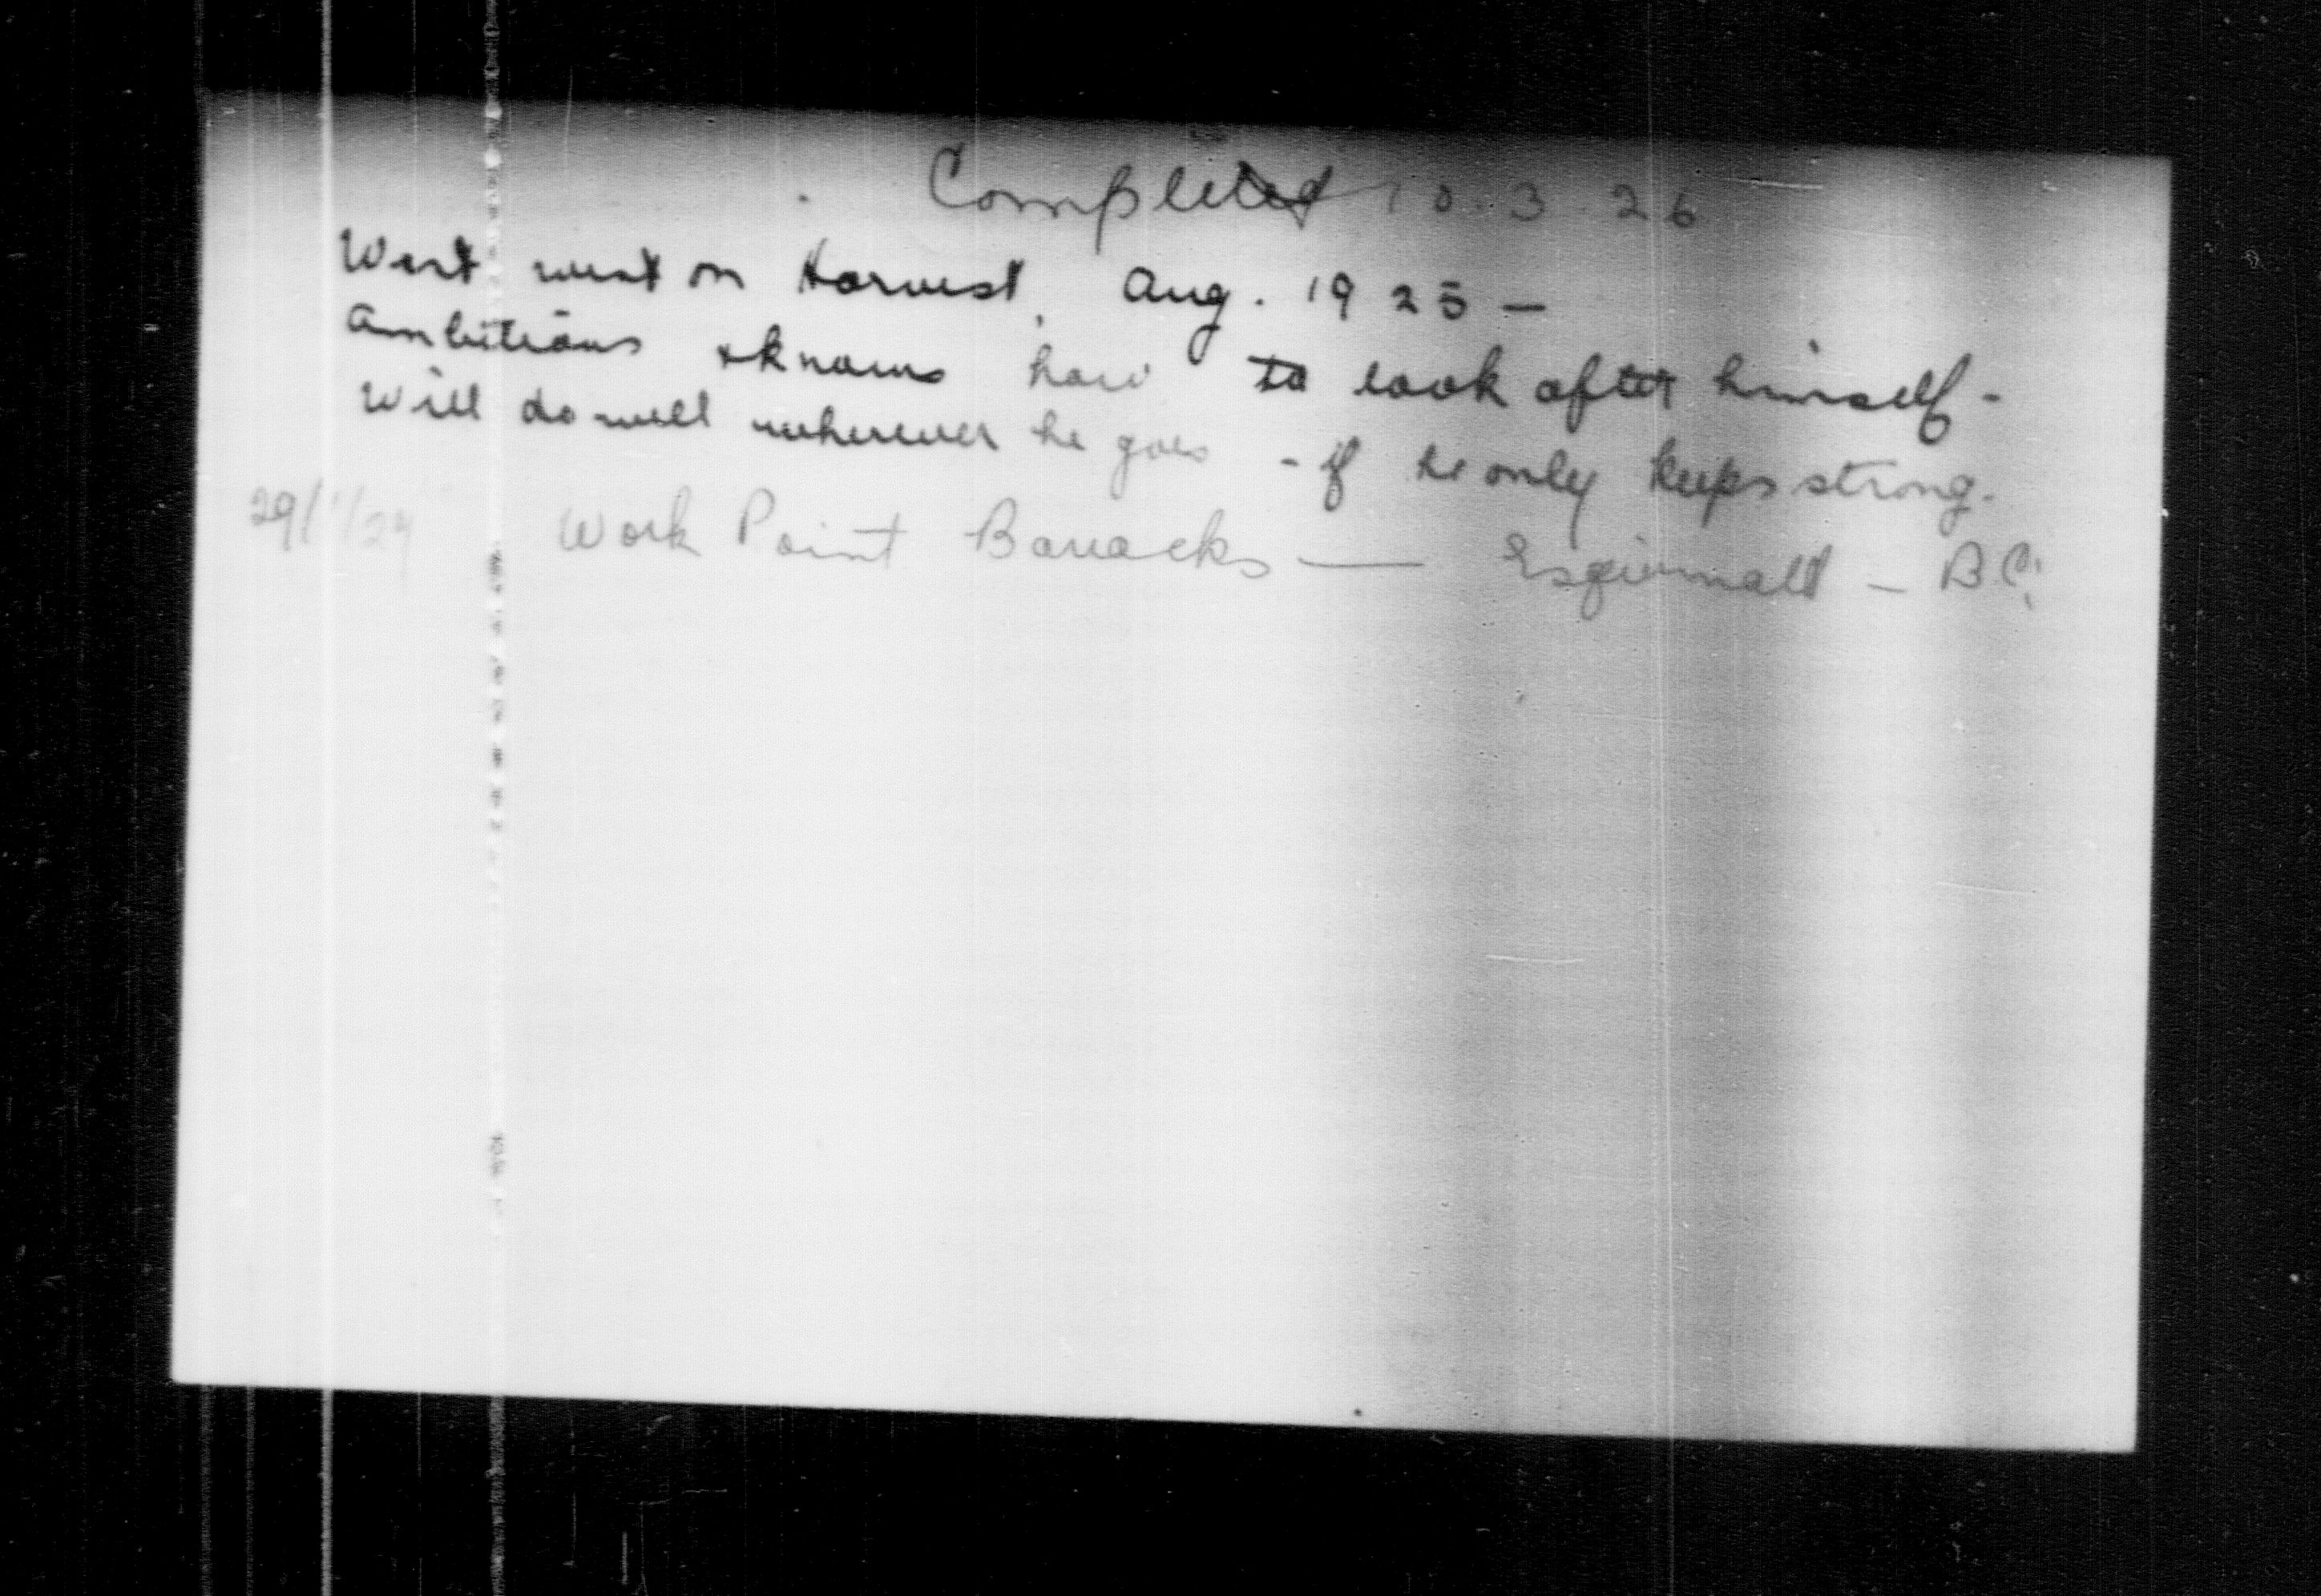 Completed 10.3.26
Went west on Harvest, Aug. 1925 —
Ambitious & knows how to look after himself -
Will do well wherever he goes - if he only keeps strong.
29/1/29 Work Point Barracks — Esquimalt — B.C.